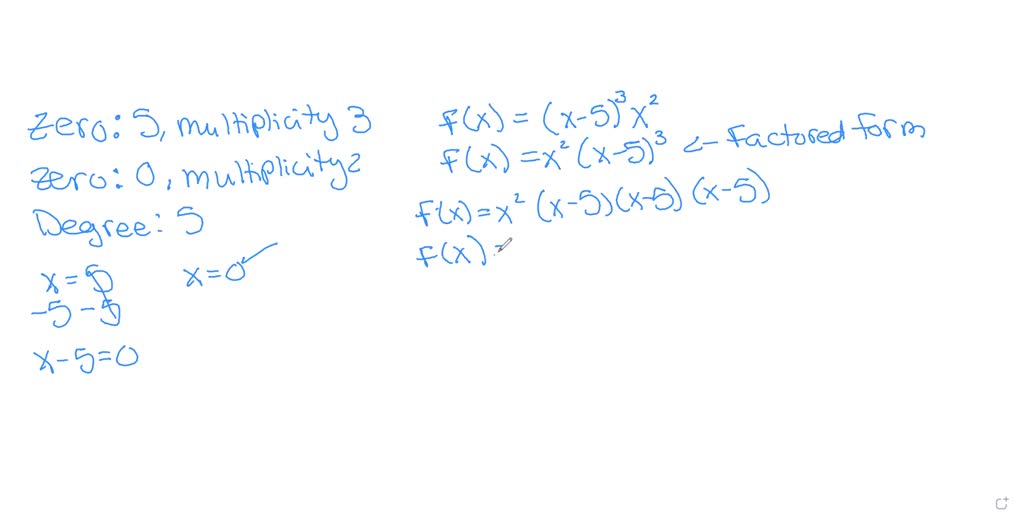 zero: 5, multiplicity 3
zero: 0, multiplicity 2
Degree: 5
x = 5
-5 -5
x - 5 = 0
x = 0
f(x) = (x-5)³x²
f(x) = x²(x-5)³ <- Factored form
f(x) = x²(x-5)(x-5)(x-5)
f(x) =